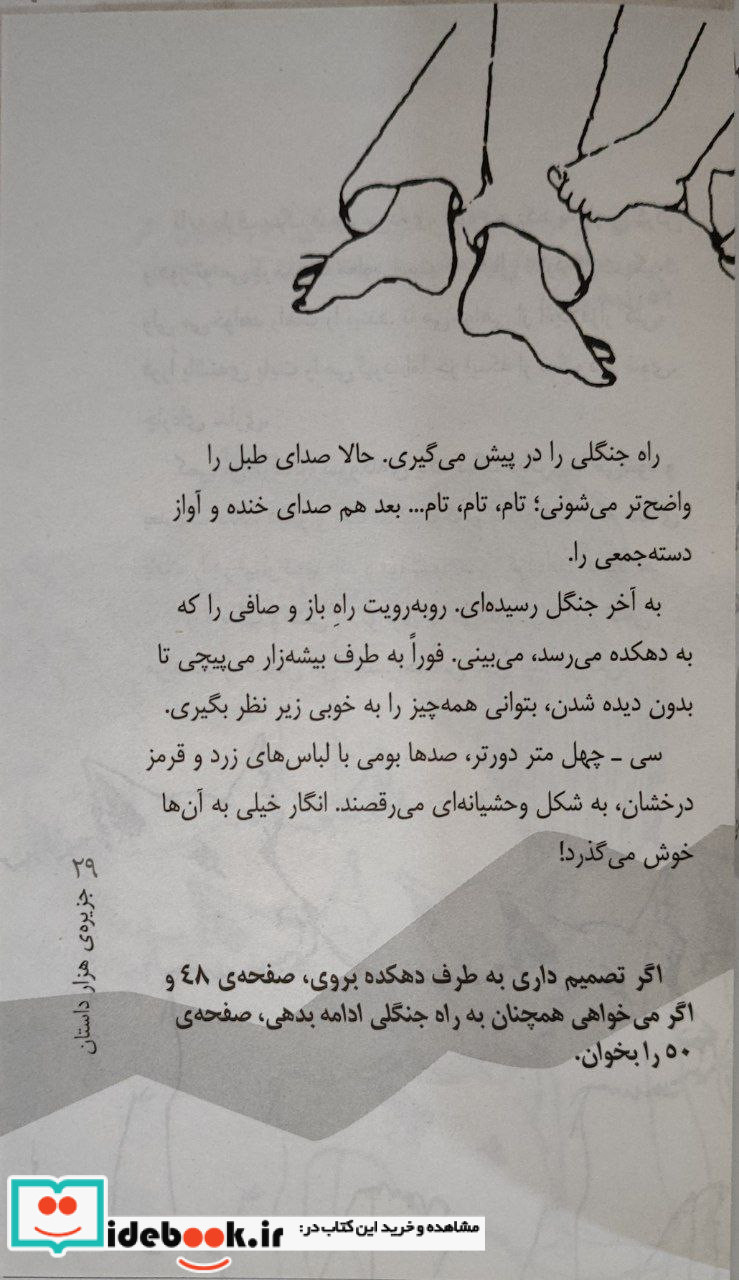 راه جنگلی را در پیش می‌گیری. حالا صدای طبل را
واضح‌تر می‌شونی؛ تام، تام، تام... بعد هم صدای خنده و آواز
دسته‌جمعی را.
به آخر جنگل رسیده‌ای. روبه‌رویت راهِ باز و صافی را که
به دهکده می‌رسد، می‌بینی. فوراً به طرف بیشه‌زار می‌پیچی تا
بدون دیده شدن، بتوانی همه‌چیز را به خوبی زیر نظر بگیری.
سی ـ چهل متر دورتر، صدها بومی با لباس‌های زرد و قرمز
درخشان، به شکل وحشیانه‌ای می‌رقصند. انگار خیلی به آن‌ها
خوش می‌گذرد!
اگر تصمیم داری به طرف دهکده بروی، صفحه‌ی ۴۸ و
اگر می‌خواهی همچنان به راه جنگلی ادامه بدهی، صفحه‌ی
۵۰ را بخوان.
۲۹ جزیره‌ی هزار داستان
مشاهده و خرید این کتاب در:
idebook.ir